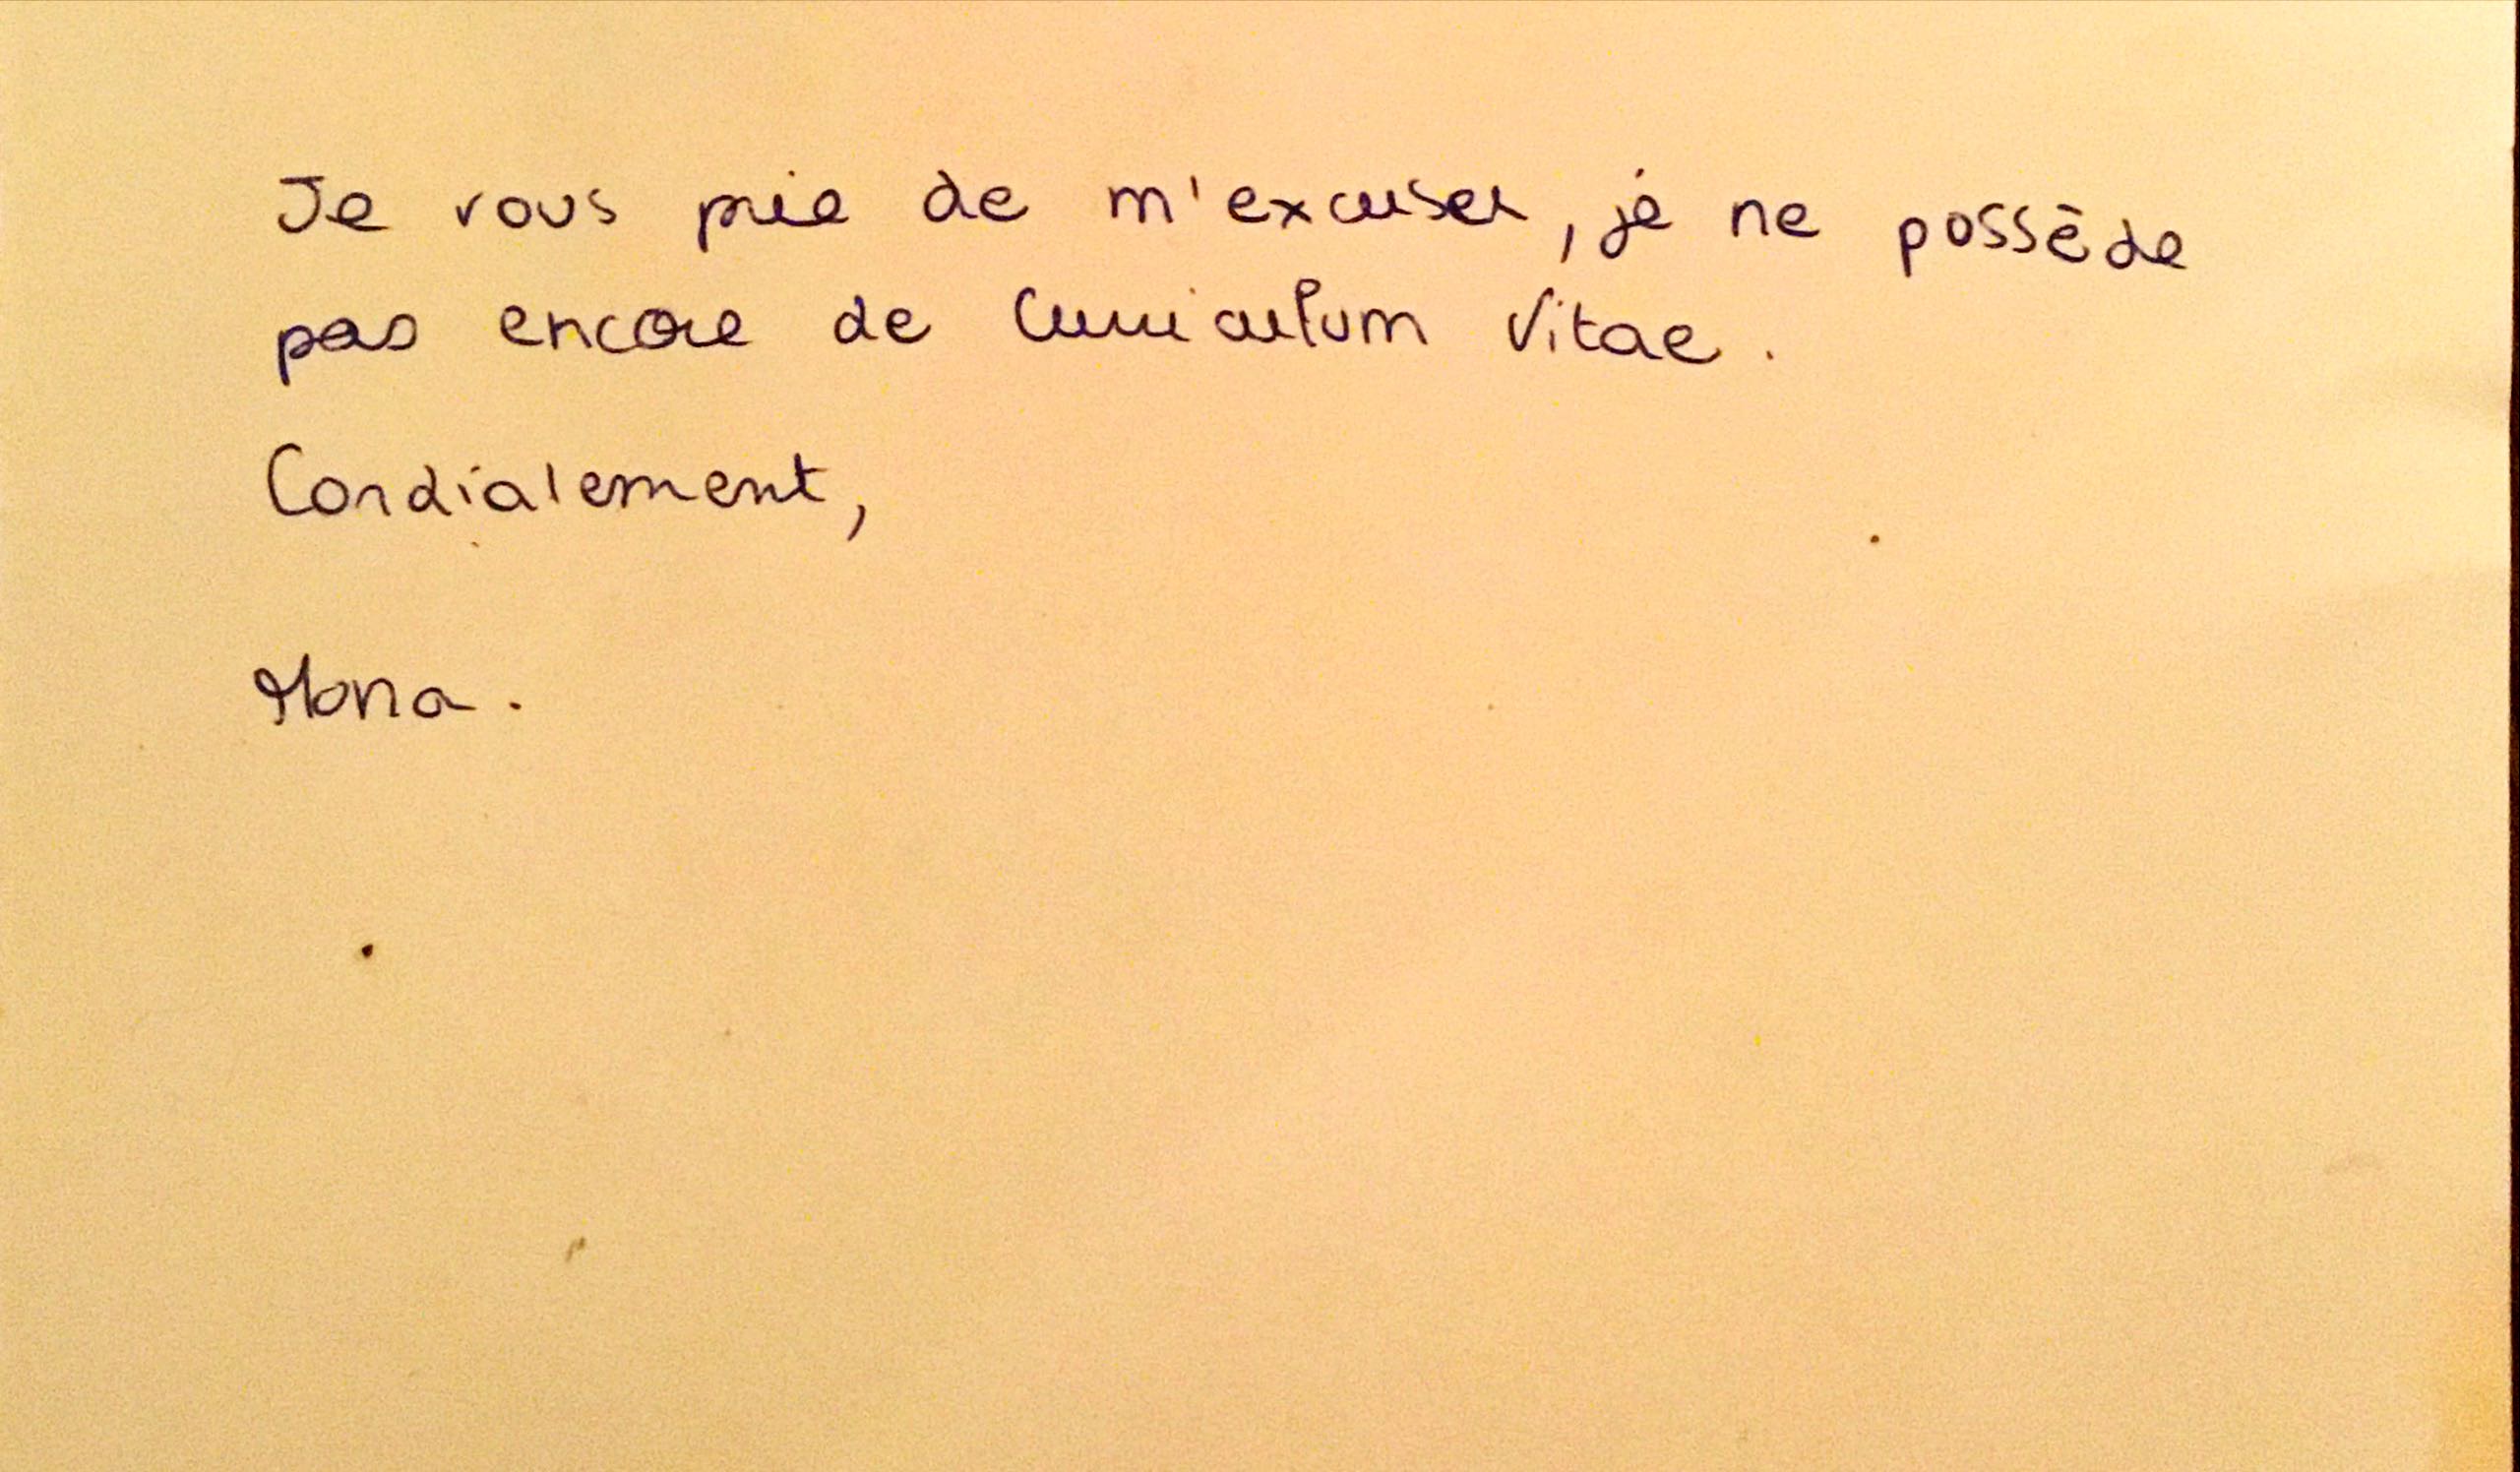 Je vous prie de m'excuser, je ne possède
pas encore de Curriculum Vitae.
Cordialement,
Mona.